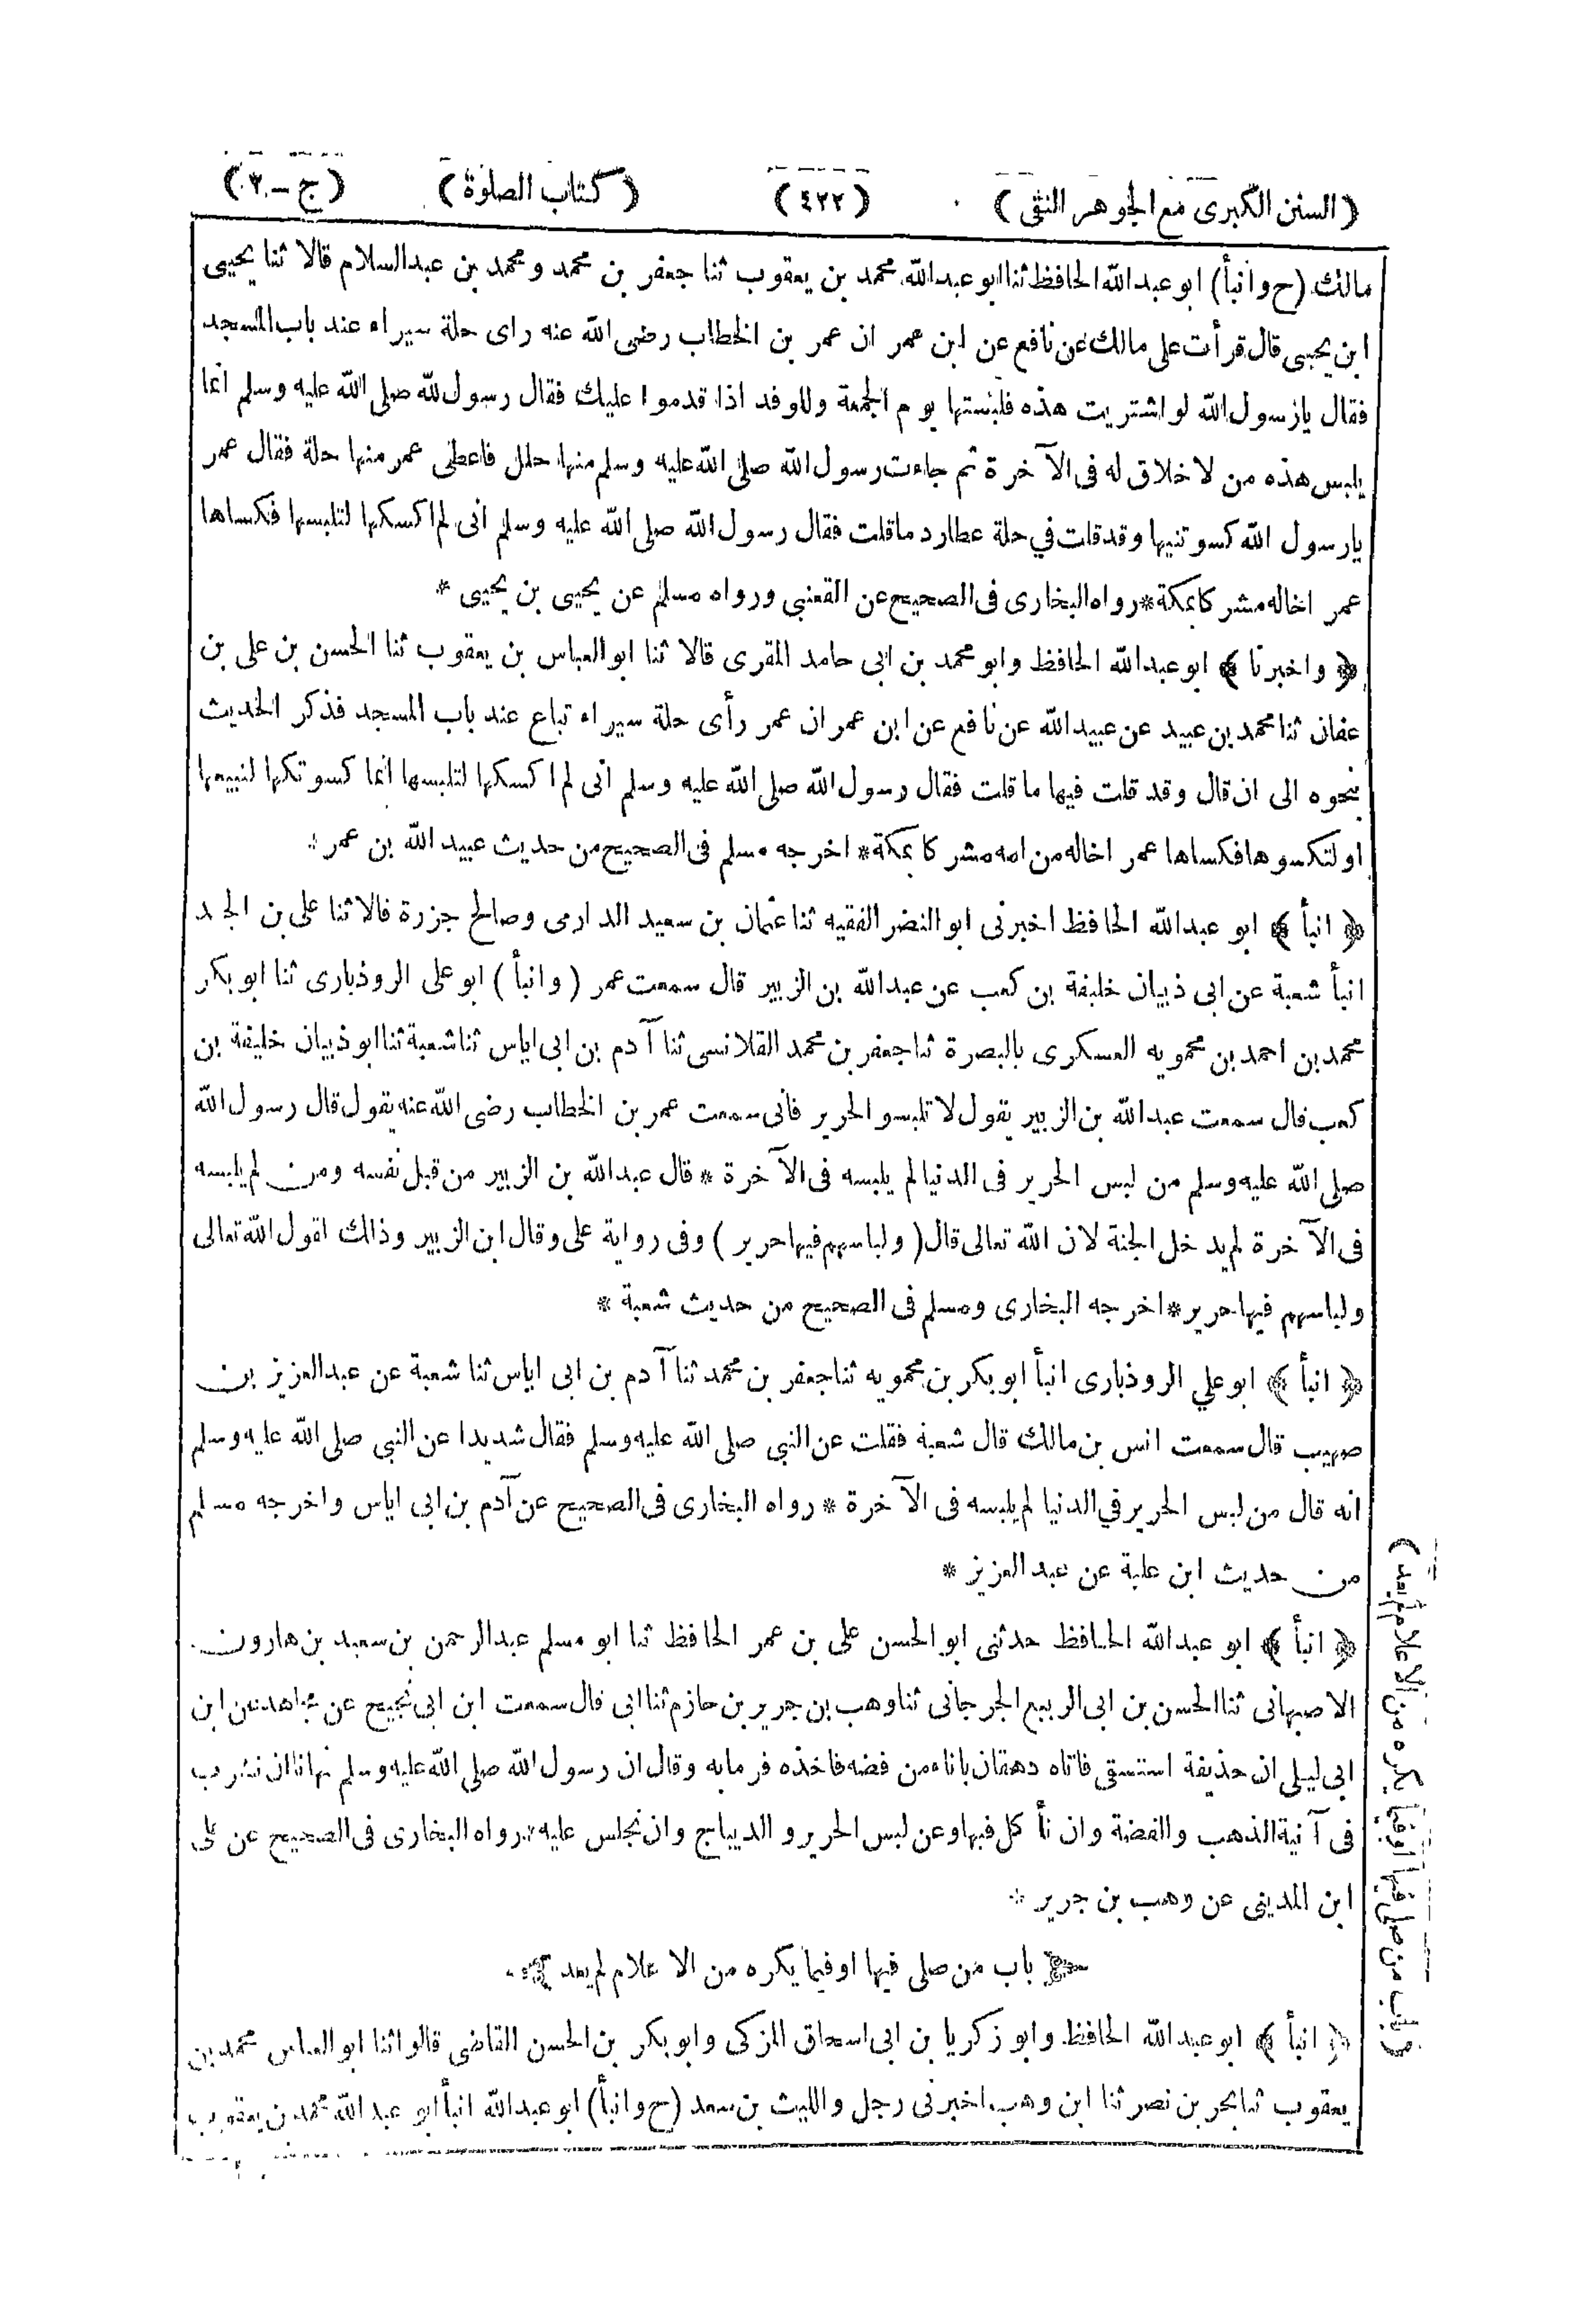 (السنن الكبرى مع الجوهر النقى) (٤٢٢) (كتاب الصلوة) (ج – ٢)
مالك (ح وانبأ) ابو عبدالله الحافظ ثنا ابو عبدالله محمد بن يعقوب ثنا جعفر بن محمد ومحمد بن عبدالسلام قالا ثنا يحيى
ابن يحيى قال قرأت على مالك عن نافع عن ابن عمر ان عمر بن الخطاب رضى الله عنه راى حلة سيراء عند باب المسجد
فقال يارسول الله لو اشتريت هذه فلبستها يوم الجمعة وللوفد اذا قدموا عليك فقال رسول لله صلى الله عليه وسلم انما
يلبس هذه من لا خلاق له فى الآخرة ثم جاءت رسول الله صلى الله عليه وسلم منها حلل فاعطى عمر منها حلة فقال عمر
يارسول الله كسوتنيها وقد قلت في حلة عطارد ماقلت فقال رسول الله صلى الله عليه وسلم انى لم اكسكها لتلبسها فكساها
عمر اخاله مشركا بمكة * رواه البخارى فى الصحيح عن القعنبي ورواه مسلم عن يحيى بن يحيى *
﴿ واخبرنا ﴾ ابو عبدالله الحافظ وابو محمد بن ابى حامد المقرى قالا ثنا ابو العباس بن يعقوب ثنا الحسن بن على بن
عفان ثنا محمد بن عبيد عن عبيد الله عن نافع عن ابن عمر ان عمر رأى حلة سيراء تباع عند باب المسجد فذكر الحديث
بنحوه الى ان قال وقد قلت فيها ما قلت فقال رسول الله صلى الله عليه وسلم انى لم اكسكها لتلبسها انما كسوتكها لتبيعها
او لتكسوها فكساها عمر اخاله من امه مشركا بمكة * اخرجه مسلم فى الصحيح من حديث عبيد الله بن عمر *
﴿ انبأ ﴾ ابو عبدالله الحافظ اخبرنى ابو النضر الفقيه ثنا عثمان بن سعيد الدارمى وصالح جزرة قالا ثنا على بن الجعد
انبأ شعبة عن ابى ذبيان خليفة بن كعب عن عبدالله بن الزبير قال سمعت عمر (وانبأ) ابو على الروذبارى ثنا ابو بكر
محمد بن احمد بن محمويه العسكرى بالبصرة ثنا جعفر بن محمد القلانسى ثنا آدم بن ابى اياس ثنا شعبة ثنا ابو ذبيان خليفة بن
كعب قال سمعت عبدالله بن الزبير يقول لا تلبسو الحرير فانى سمعت عمر بن الخطاب رضى الله عنه يقول قال رسول الله
صلى الله عليه وسلم من لبس الحرير فى الدنيا لم يلبسه فى الآخرة * قال عبدالله بن الزبير من قبل نفسه ومن لم يلبسه
فى الآخرة لم يدخل الجنة لان الله تعالى قال (ولباسهم فيها حرير) وفى رواية على وقال ابن الزبير وذالك لقول الله تعالى
ولباسهم فيها حرير * اخرجه البخارى ومسلم فى الصحيح من حديث شعبة *
﴿ انبأ ﴾ ابو علي الروذبارى انبأ ابو بكر بن محمويه ثنا جعفر بن محمد ثنا آدم بن ابى اياس ثنا شعبة عن عبدالعزيز بن
صهيب قال سمعت انس بن مالك قال شعبة فقلت عن النبي صلى الله عليه وسلم فقال شديدا عن النبي صلى الله عليه وسلم
انه قال من لبس الحرير في الدنيا لم يلبسه فى الآخرة * رواه البخارى فى الصحيح عن آدم بن ابى اياس واخرجه مسلم
من حديث ابن علية عن عبدالعزيز *
﴿ انبأ ﴾ ابو عبدالله الحافظ حدثنى ابو الحسن على بن عمر الحافظ ثنا ابو مسلم عبدالرحمن بن سعيد بن هارون
الاصبهانى ثنا الحسن بن ابى الربيع الجرجانى ثنا وهب بن جرير بن حازم ثنا ابى قال سمعت ابن ابى نجيح عن مجاهد عن ابن
ابى ليلى ان حذيفة استسقى فاتاه دهقان باناء من فضه فاخذه فرمابه وقال ان رسول الله صلى الله عليه وسلم نهانا ان نشرب
فى آنية الذهب والفضة وان نأكل فيها وعن لبس الحرير والديباج وان نجلس عليه * رواه البخارى فى الصحيح عن على
ابن المدينى عن وهب بن جرير *
باب من صلى فيها او فيما يكره من الاعلام لم يعد
﴿ انبأ ﴾ ابو عبدالله الحافظ وابو زكريا بن ابى اسحاق المزكى وابو بكر بن الحسن القاضى قالوا ثنا ابو العباس محمد بن
يعقوب ثنا بحر بن نصر ثنا ابن وهب اخبرنى رجل والليث بن سعد (ح وانبأ) ابو عبدالله انبأ ابو عبدالله محمد بن يعقوب
(باب من صلى فيها او فيما يكره من الاعلام لم يعد)